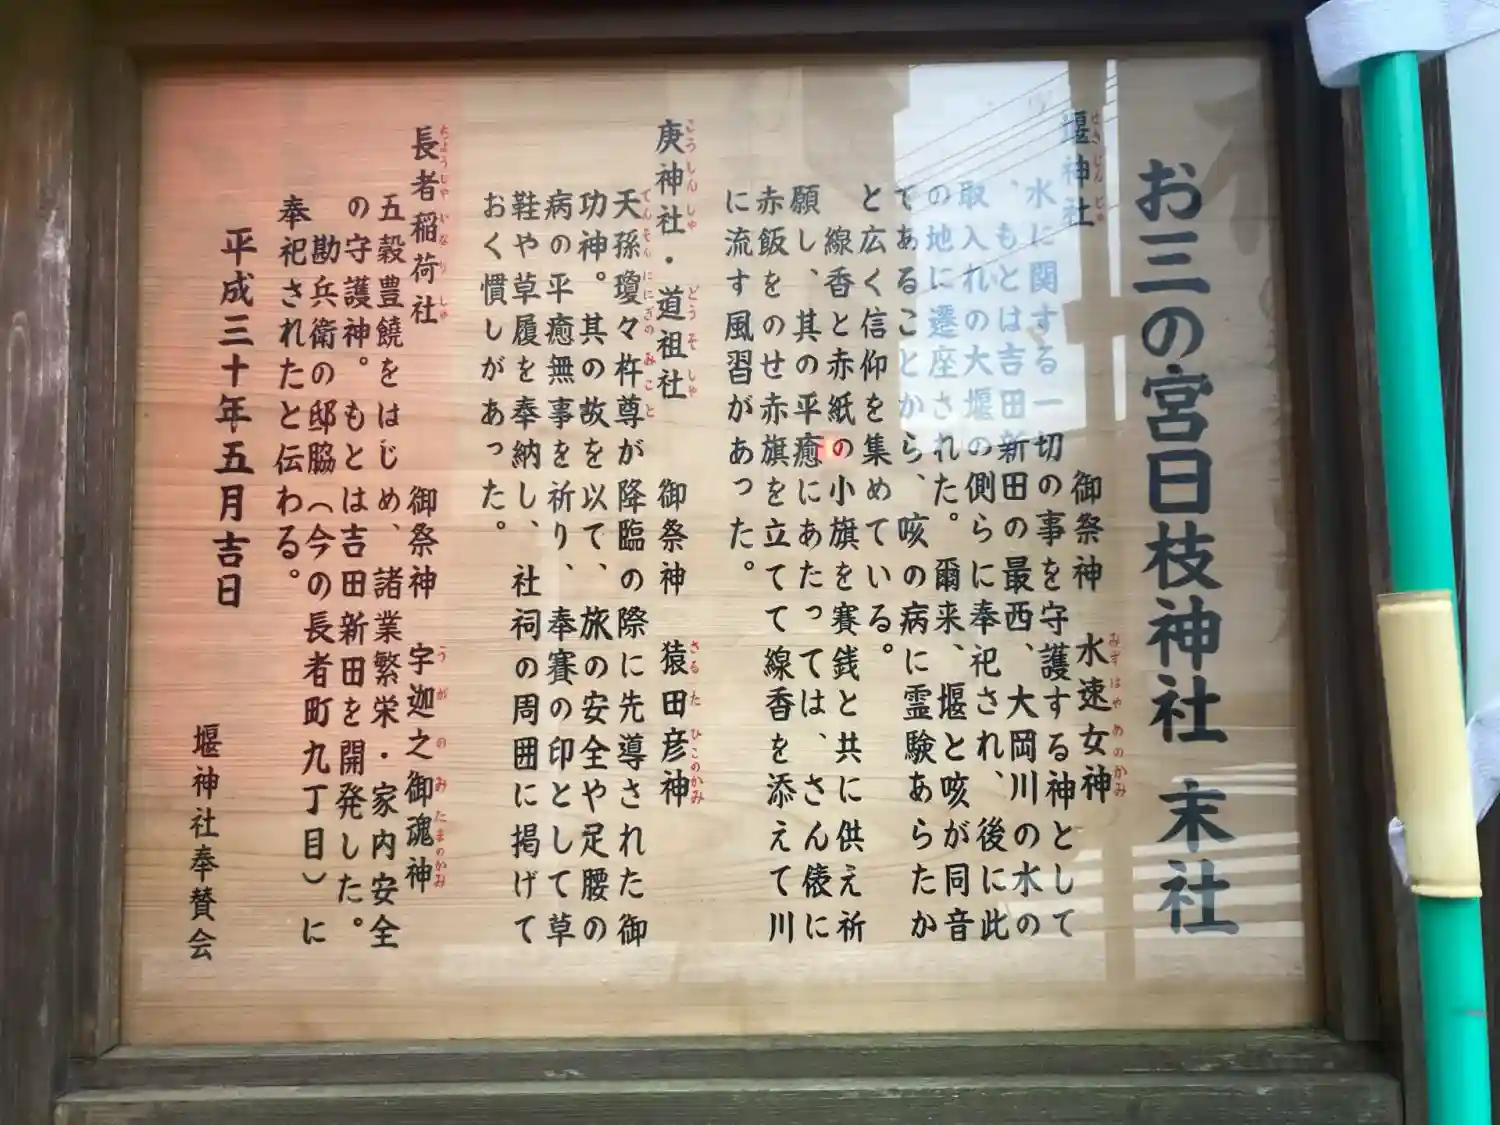 お三の宮日枝神社 末社
堰神社 御祭神 水速女神
せきじんじゃ みずはやめのかみ
水に関する一切の事を守護する神として
、もとは吉田新田の最西、大岡川の水の
取入れの大堰の側らに奉祀され、後に此
の地に遷座された。爾来、堰と咳が同音
であることから、咳の病に霊験あらたか
と広く信仰を集めている。
線香と赤紙の小旗を賽銭と共に供え祈
願し、其の平癒にあたっては、さん俵に
赤飯をのせ赤旗を立てて線香を添えて川
に流す風習があった。
庚神社・道祖社 御祭神 猿田彦神
こうしんしゃ どうそしゃ さるたひこのかみ
天孫瓊々杵尊が降臨の際に先導された御
てんそんににぎのみこと
功神。其の故を以て、旅の安全や足腰の
病の平癒無事を祈り、奉賽の印として草
鞋や草履を奉納し、社祠の周囲に掲げて
おく慣しがあった。
長者稲荷社 御祭神 宇迦之御魂神
ちょうじゃいなりしゃ うがのみたまのかみ
五穀豊饒をはじめ、諸業繁栄・家内安全
の守護神。もとは吉田新田を開発した。
勘兵衛の邸脇（今の長者町九丁目）に
奉祀されたと伝わる。
平成三十年五月吉日
堰神社奉賛会